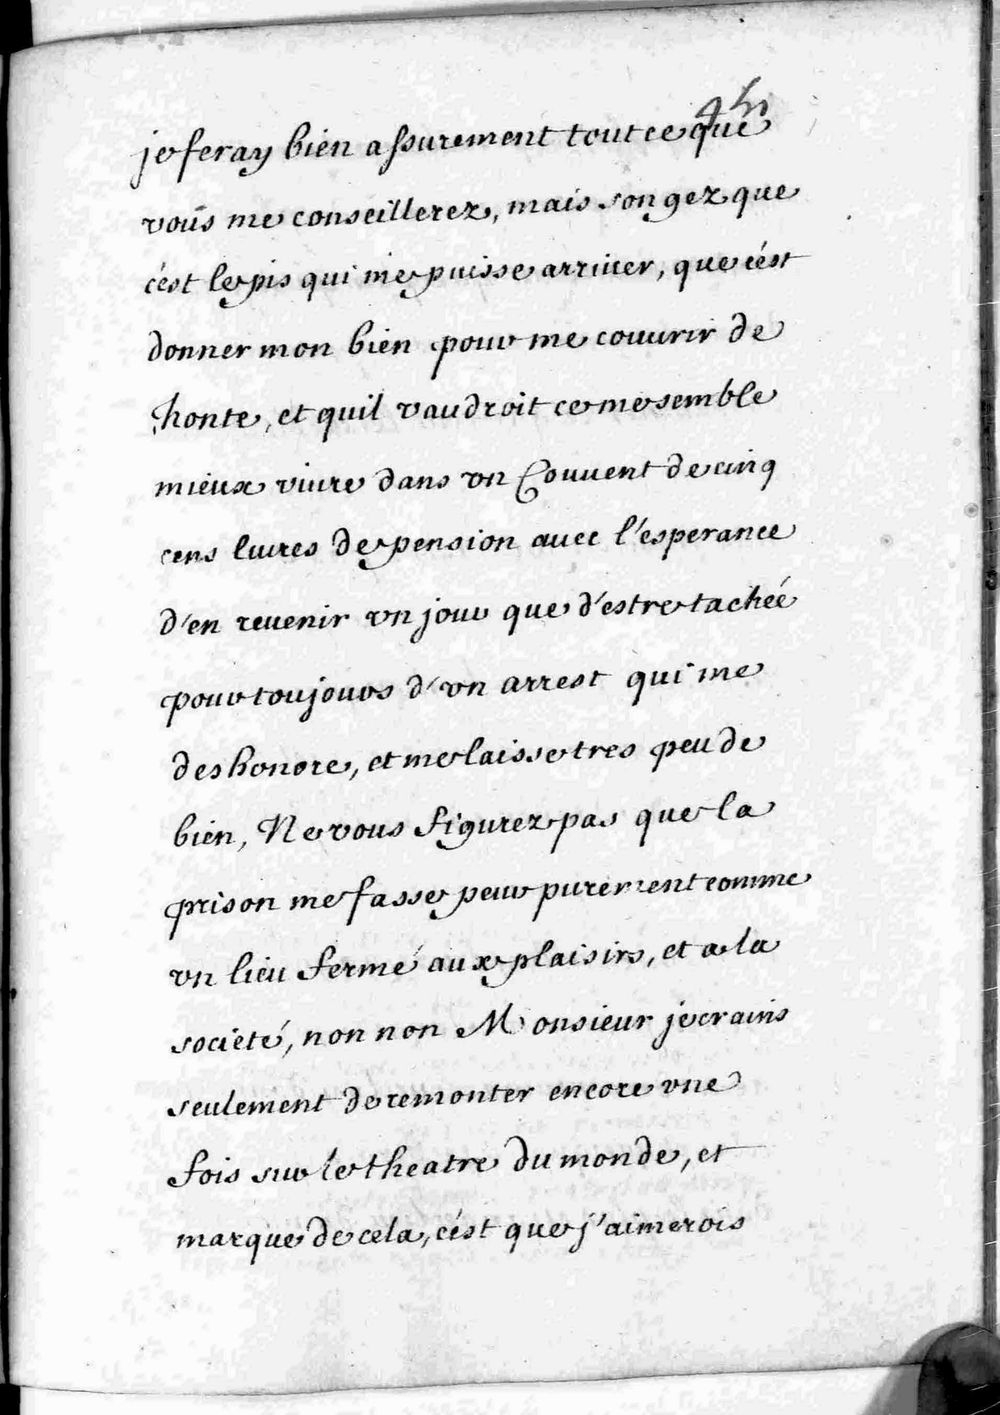 je feray bien assurement tout ce que
vous me conseillerez, mais songez que
c'est le pis qui me puisse arriuer, que c'est
donner mon bien pour me couurir de
honte, et quil vaudroit ce me semble
mieux viure dans vn Couuent de cinq
cens liures de pension auec l'esperance
d'en reuenir vn jour que d'estre tachée
pour toujours d'vn arrest qui me
deshonore, et me laisse tres peu de
bien, Ne vous figurez pas que la
prison me fasse peur purement comme
vn lieu fermé aux plaisirs, et a la
societé, non non Monsieur je crains
seulement de remonter encore vne
fois sur le theatre du monde, et
marque de cela, c'est que j'aimerois